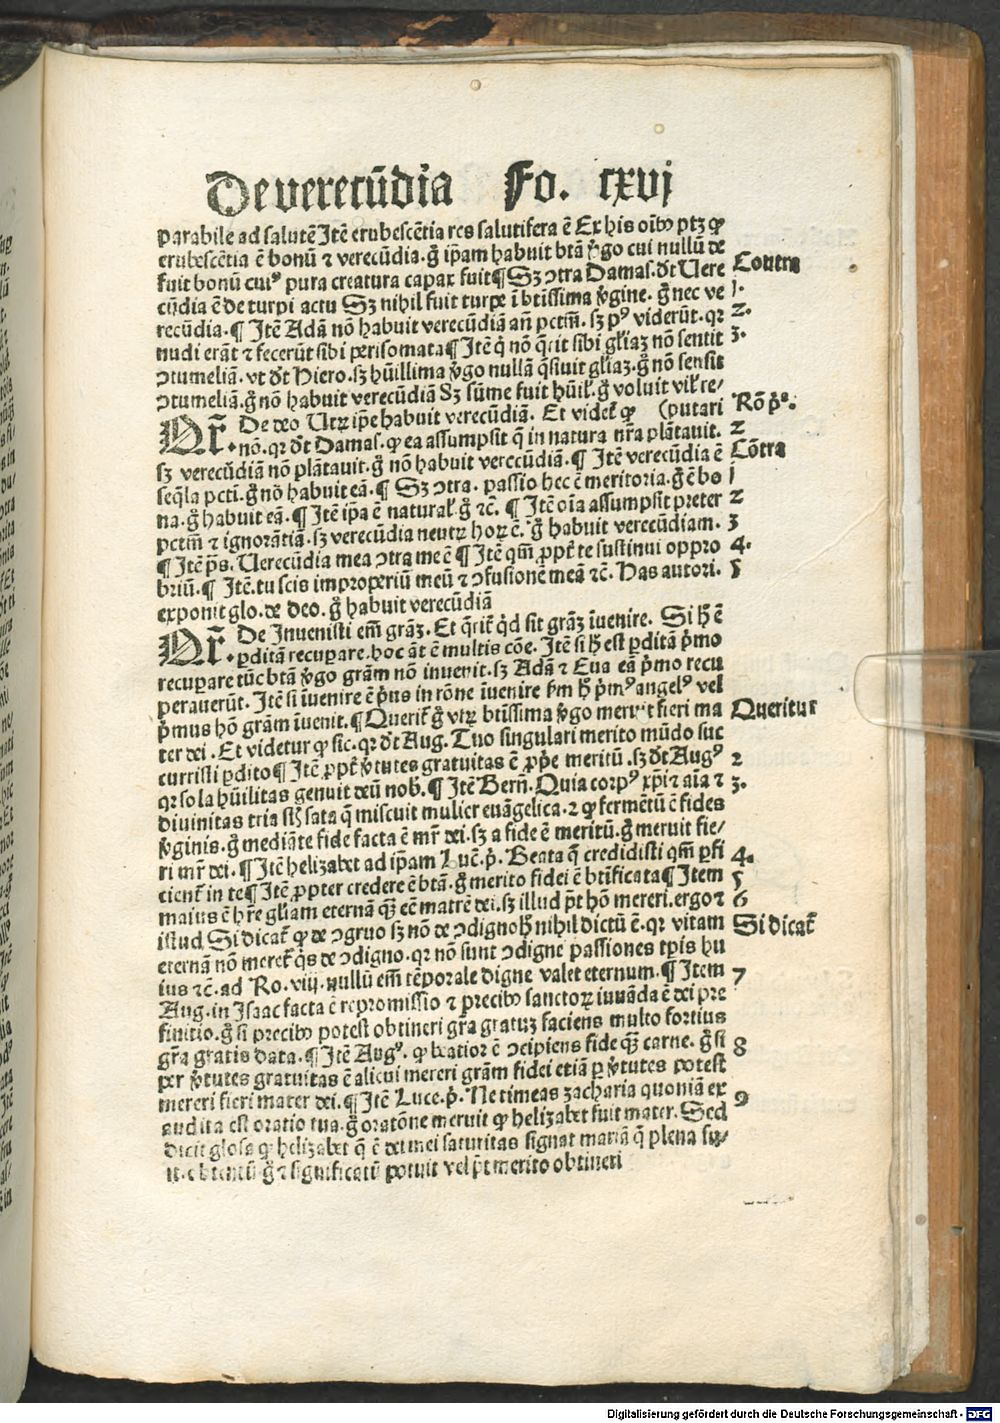 De verecūdia Fo. cxvj
parabile ad salutē Itē erubescētia res salutifera ē Ex his oīb ptꝫ ꝙ
erubescētia ē bonū ⁊ verecūdia. g̊ ip̄am habuit btā v̓go cui nullū de
fuit bonū cuiꝰ pura creatura capax fuit ¶ Sꝫ ↄtra Damas. dt̄ Uere
Contra
cūdia ē de turpi actu Sꝫ nihil fuit turpe ī btīssima v̓gine. g̊ nec ve
1.
recūdia. ¶ Itē Adā nō habuit verecūdiā an̄ pctm̄. sꝫ pꝰ viderūt. qꝛ
2.
nudi erāt ⁊ fecerūt sibi perisomata ¶ Itē q̓ nō q̄rit sibi gl̄iaꝫ nō sentit
3.
ↄtumeliā. vt dt̄ Hiero. sꝫ hūillima v̓go nullā q̄siuit gl̄iaꝫ. g̊ nō sensit
ↄtumeliā. g̊ nō habuit verecūdiā Sꝫ sūme fuit hūil̄. g̊ voluit vil̄ re/
Ar̄. De deo Utꝝ ip̄e habuit verecūdiā. Et videt̄ ꝙ (putari
Rō p̓ᵃ.
nō. qꝛ dt̄ Damas. ꝙ ea assumpsit q̄ in natura nr̄a plātauit.
2
sꝫ verecūdiā nō plātauit. g̊ nō habuit verecūdiā. ¶ Itē verecūdia ē
Cōtra
seq̄la pcti. g̊ nō habuit eā. ¶ Sꝫ ↄtra. passio hec ē meritoria. g̊ ē bo
1
na. g̊ habuit eā. ¶ Itē ip̄a ē natural̄. g̊ ⁊c̄. ¶ Itē oīa assumpsit preter
2
pctm̄ ⁊ ignorātiā. sꝫ verecūdia neutꝝ hoꝝ ē. g̊ habuit verecūdiam.
3
¶ Itē p̄s. Uerecūdia mea ↄtra me ē ¶ Itē qm̄ ꝓpt̄ te sustinui oppro
4.
briū. ¶ Itē. tu scis improperiū meū ⁊ ↄfusionē meā ⁊c̄. Has autori.
5
exponit glo. de deo. g̊ habuit verecūdiā
Ar̄. De Inuenisti em̄ grāꝫ. Et q̄rit̄ qd̓ sit grāꝫ īuenire. Si h̄ ē
ꝑditā recuꝑare. hoc āt ē multis cōe. Itē si h̄ est ꝑditā p̓mo
recuꝑare tūc btā v̓go grām nō inuenit. sꝫ Adā ⁊ Eua eā p̓mo recu
perauerūt. Itē si īuenire ē p̓us in rōne īuenire s̄m h̄ p̓mꝰ angelꝰ vel
p̓mus hō grām īuenit. ¶ Querit̄ g̊ vtꝝ btīssima v̓go meruit fieri ma
Queritur
ter dei. Et videtur ꝙ sic. qꝛ dt̄ Aug. Tuo singulari merito mūdo suc
curristi ꝑdito ¶ Itē ꝓpt̄ v̓tutes gratuitas ē ꝓp̄e meritū. sꝫ dt̄ Augꝰ
2
qꝛ sola hūilitas genuit deū nob̄. ¶ Itē Bern̄. Quia corpꝰ xp̄i ⁊ aīa ⁊
3.
diuinitas tria st̄ sata q̄ miscuit mulier euāgelica. ⁊ ꝙ fermētū ē fides
v̓ginis. g̊ mediāte fide facta ē mr̄ dei. sꝫ a fide ē meritū. g̊ meruit fie/
ri mr̄ dei. ¶ Itē helizabet ad ip̄am Luc̄. p̓. Beata q̄ credidisti qm̄ ꝑfi
4.
cient̄ in te ¶ Itē ꝓpter credere ē btā. g̊ merito fidei ē btīficata ¶ Item
5
maius ē hr̄e gl̄iam eternā qꝫ eē matrē dei. sꝫ illud p̄t hō mereri. ergo ⁊
6
istud Si dicat̄ ꝙ de ↄgruo sꝫ nō de ↄdigno h̄ nihil dictū ē. qꝛ vitam
Si dicat̄
eternā nō meret̄ q̓s de ↄdigno. qꝛ nō sunt ↄdigne passiones tp̄is hu
ius ⁊c̄. ad Ro. viij. nullū em̄ tēporale digne valet eternum. ¶ Item
7
Aug. in Isaac facta ē repromissio ⁊ precib sanctoꝝ iuuāda ē dei pre
finitio. g̊ si precib potest obtineri gra gratuꝫ faciens multo fortius
gr̄a gratis data. ¶ Itē Augꝰ. ꝙ beatior ē ↄcipiens fide qꝫ carne. g̊ si
8
per v̓tutes gratuitas ē alicui mereri grām fidei etiā ꝑ v̓tutes potest
mereri fieri mater dei. ¶ Itē Luce. p̓. Ne timeas zacharia quoniā ex
9
audita est oratio tua. g̊ oratōne meruit ꝙ helizabet fuit mater. Sed
dicit glosa ꝙ helizabet q̄ ē dei mei saturitas signat mariā q̄ plena fu/
it. g̊ ⁊ significatū potuit vel p̄t merito obtineri
Digitalisierung gefördert durch die Deutsche Forschungsgemeinschaft - DFG